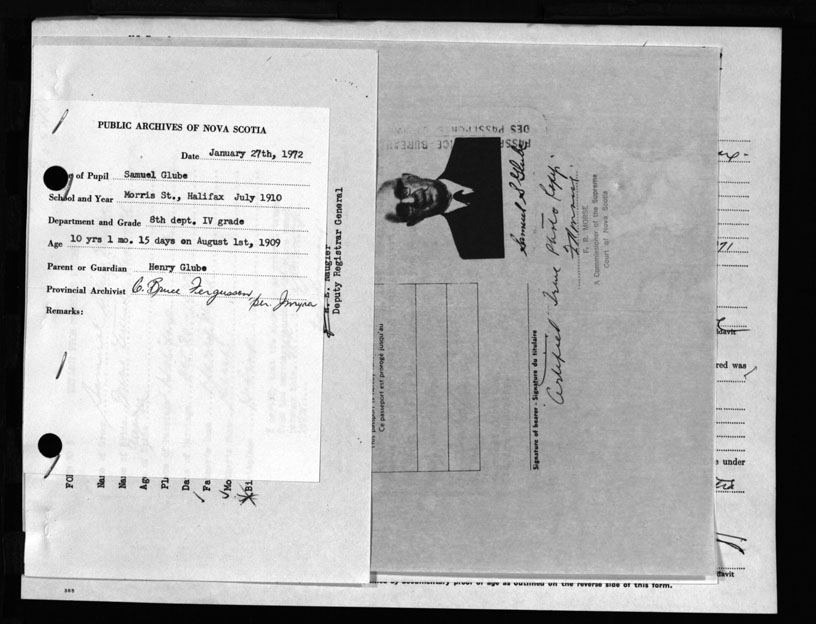 PUBLIC ARCHIVES OF NOVA SCOTIA
Date January 27th, 1972
of Pupil Samuel Glube
School and Year Morris St., Halifax July 1910
Department and Grade 8th dept. IV grade
Age 10 yrs 1 mo. 15 days on August 1st, 1909
Parent or Guardian Henry Glube
Provincial Archivist C. Bruce Fergusson, per. Jmyra
Remarks:
Deputy Registrar General
FO
Na
Nam
Ag
Pl
Da
Fa
Mo
Bi
DES PASSEPORTS
BUREAU
Samuel S Glube
Certified True Photo Copy.
F. B. MORSE
A Commissioner of the Supreme
Court of Nova Scotia
Ce passeport est prorogé jusqu'au
Signature of bearer - Signature du titulaire
71
davit
red was
s under
davit
by documentary proof of age as outlined on the reverse side of this form.